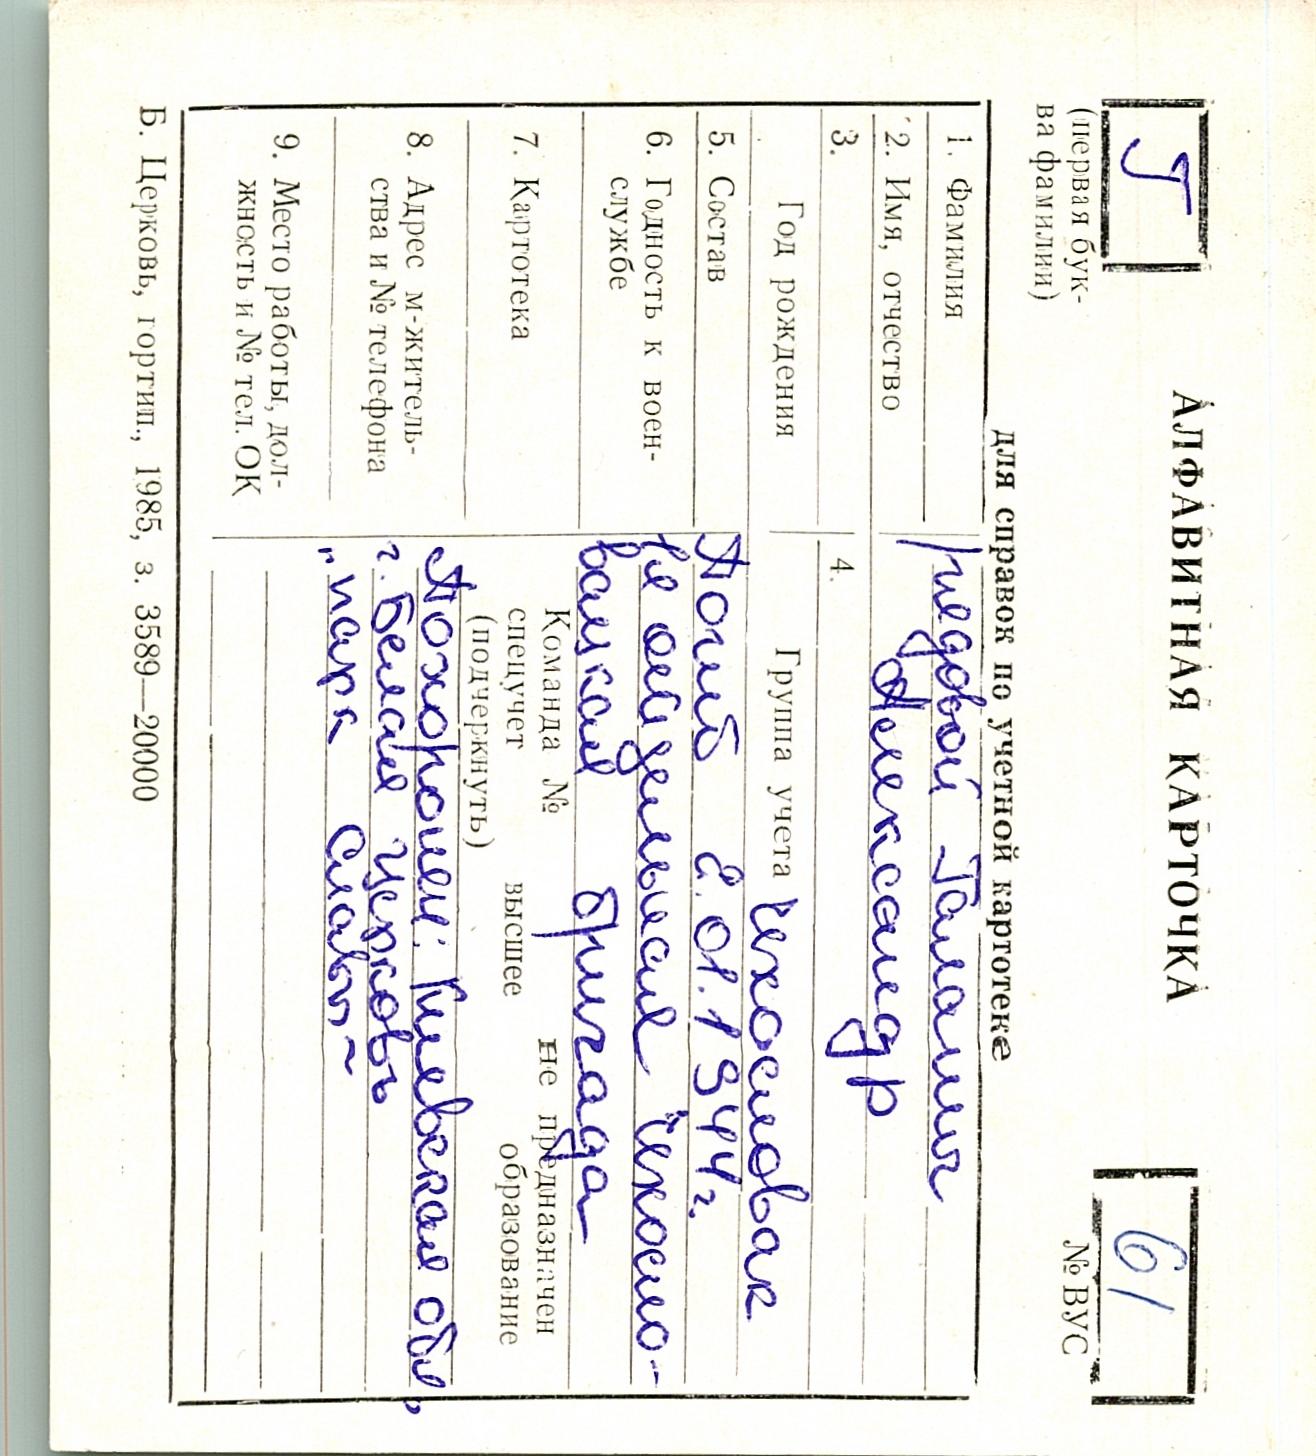 АЛФАВИТНАЯ КАРТОЧКА
(первая бук-
ва фамилии)
61
№ ВУС
для справок по учетной картотеке
1. Фамилия рядовой
2. Имя, отчество Александр
3. 4.
Год рождения Группа учета Чехословак
5. Состав Погиб 2.01.1944 г.
6. Годность к воен-
службе
1-я отдельная Чехосло-
вацкая бригада
7. Картотека
Команда № не предназначен
спецучет высшее образование
(подчеркнуть)
8. Адрес м-житель-
ства и № телефона
Похоронен: Киевская обл,
г. Белая Церковь
„парк Славы"
9. Место работы, дол-
жность и № тел. ОК
Б. Церковь, гортип., 1985, з. 3589—20000